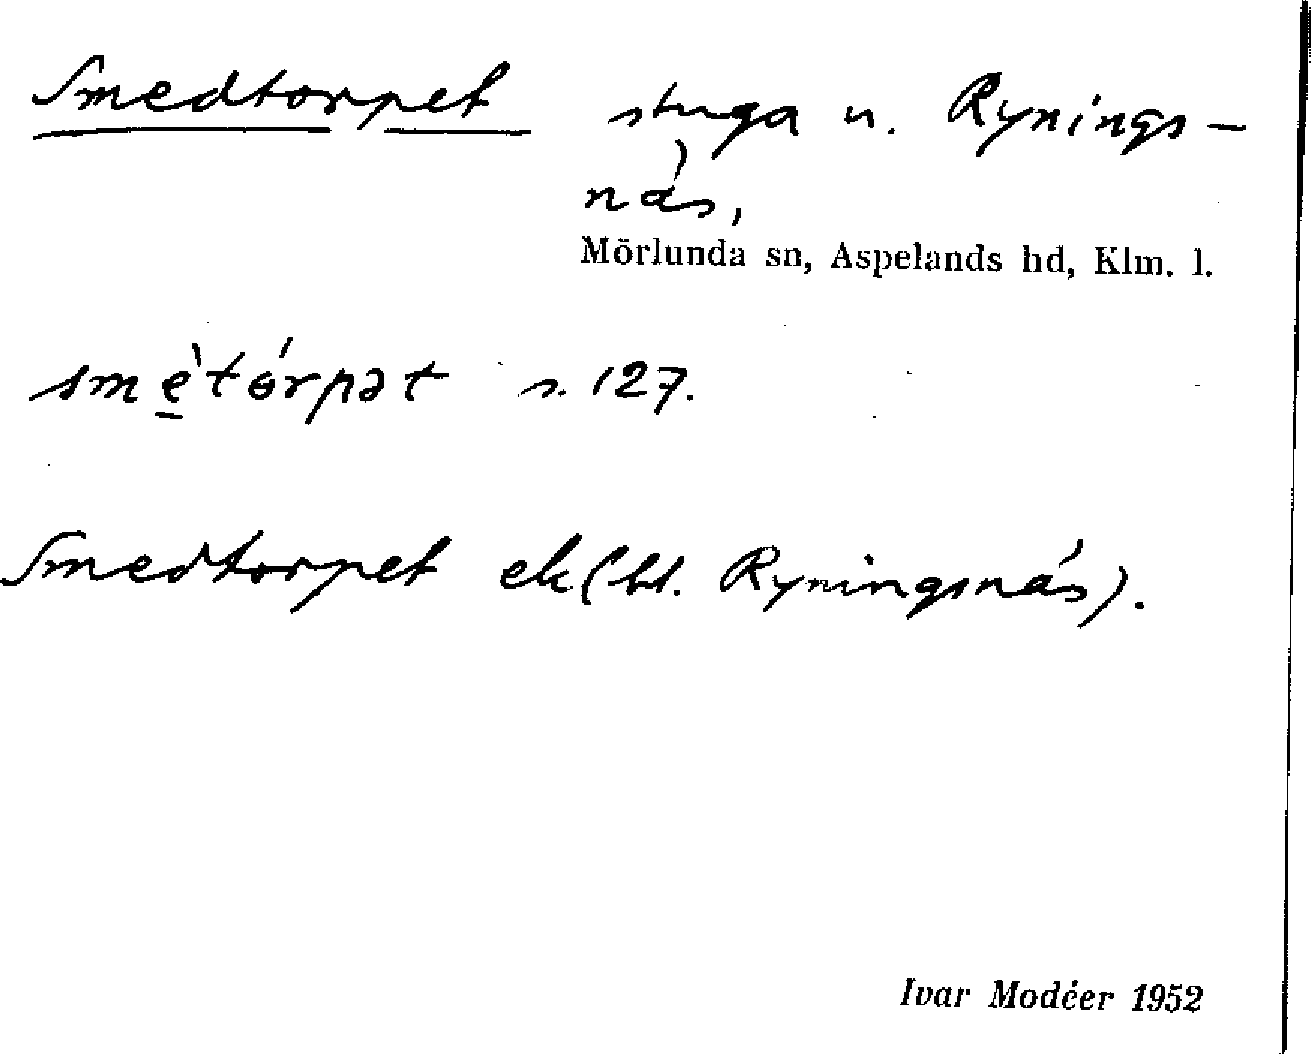 Smedtorpet stuga u. Rynings-
näs,
Mörlunda sn, Aspelands hd, Klm. l.
smè̱tórpət s. 127.
Smedtorpet ek (bl. Ryningsnäs).
Ivar Modéer 1952